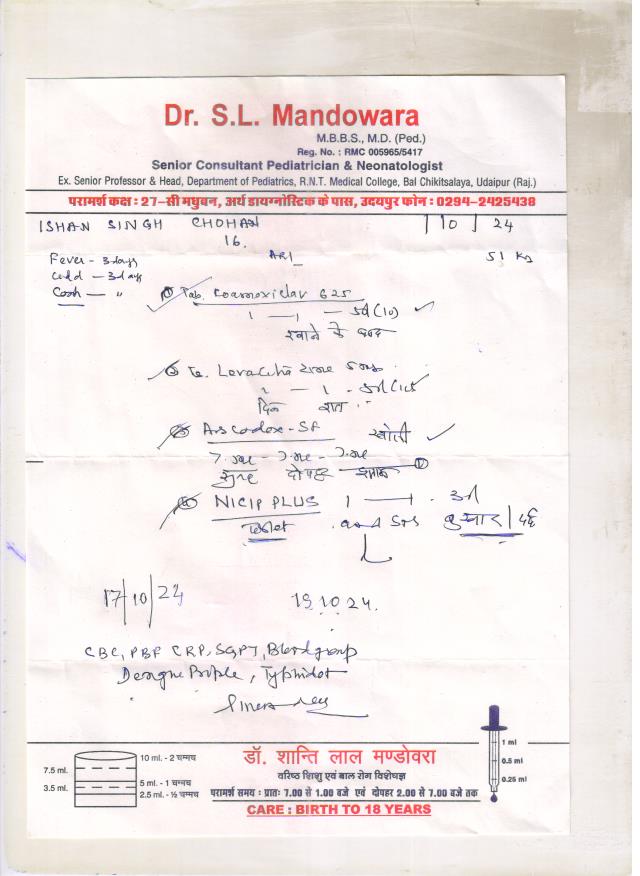 Dr. S.L. Mandowara
M.B.B.S., M.D. (Ped.)
Reg. No. : RMC 005965/5417
Senior Consultant Pediatrician & Neonatologist
Ex. Senior Professor & Head, Department of Pediatrics, R.N.T. Medical College, Bal Chikitsalaya, Udaipur (Raj.)
परामर्श कक्ष : 27-सी मधुबन, अर्थ डायग्नोस्टिक के पास, उदयपुर फोन : 0294-2425438
ISHAN SINGH CHOHAN / 10 / 24
16.
ARI 51 Kg
Fever - 3 days
Cold - 3 days
Cough - "
① Tab. Coamoxiclav 625
1 — 1 (10)
खाने के बाद
②
दिन रात
Ascodox-SF खांसी
सुबह दोपहर शाम
NICIP PLUS 1
बुखार / दर्द
17/10/24 19.10.24.
CBC, PBF CRP, SGPT, Blood group
Dengue Profile, Typhidot
10 ml. - 2 चम्मच
7.5 ml.
5 ml. - 1 चम्मच
3.5 ml.
2.5 ml. - ½ चम्मच
डॉ. शान्ति लाल मण्डोवरा
वरिष्ठ शिशु एवं बाल रोग विशेषज्ञ
परामर्श समय : प्रातः 7.00 से 1.00 बजे एवं दोपहर 2.00 से 7.00 बजे तक
CARE : BIRTH TO 18 YEARS
1 ml
0.5 ml
0.25 ml